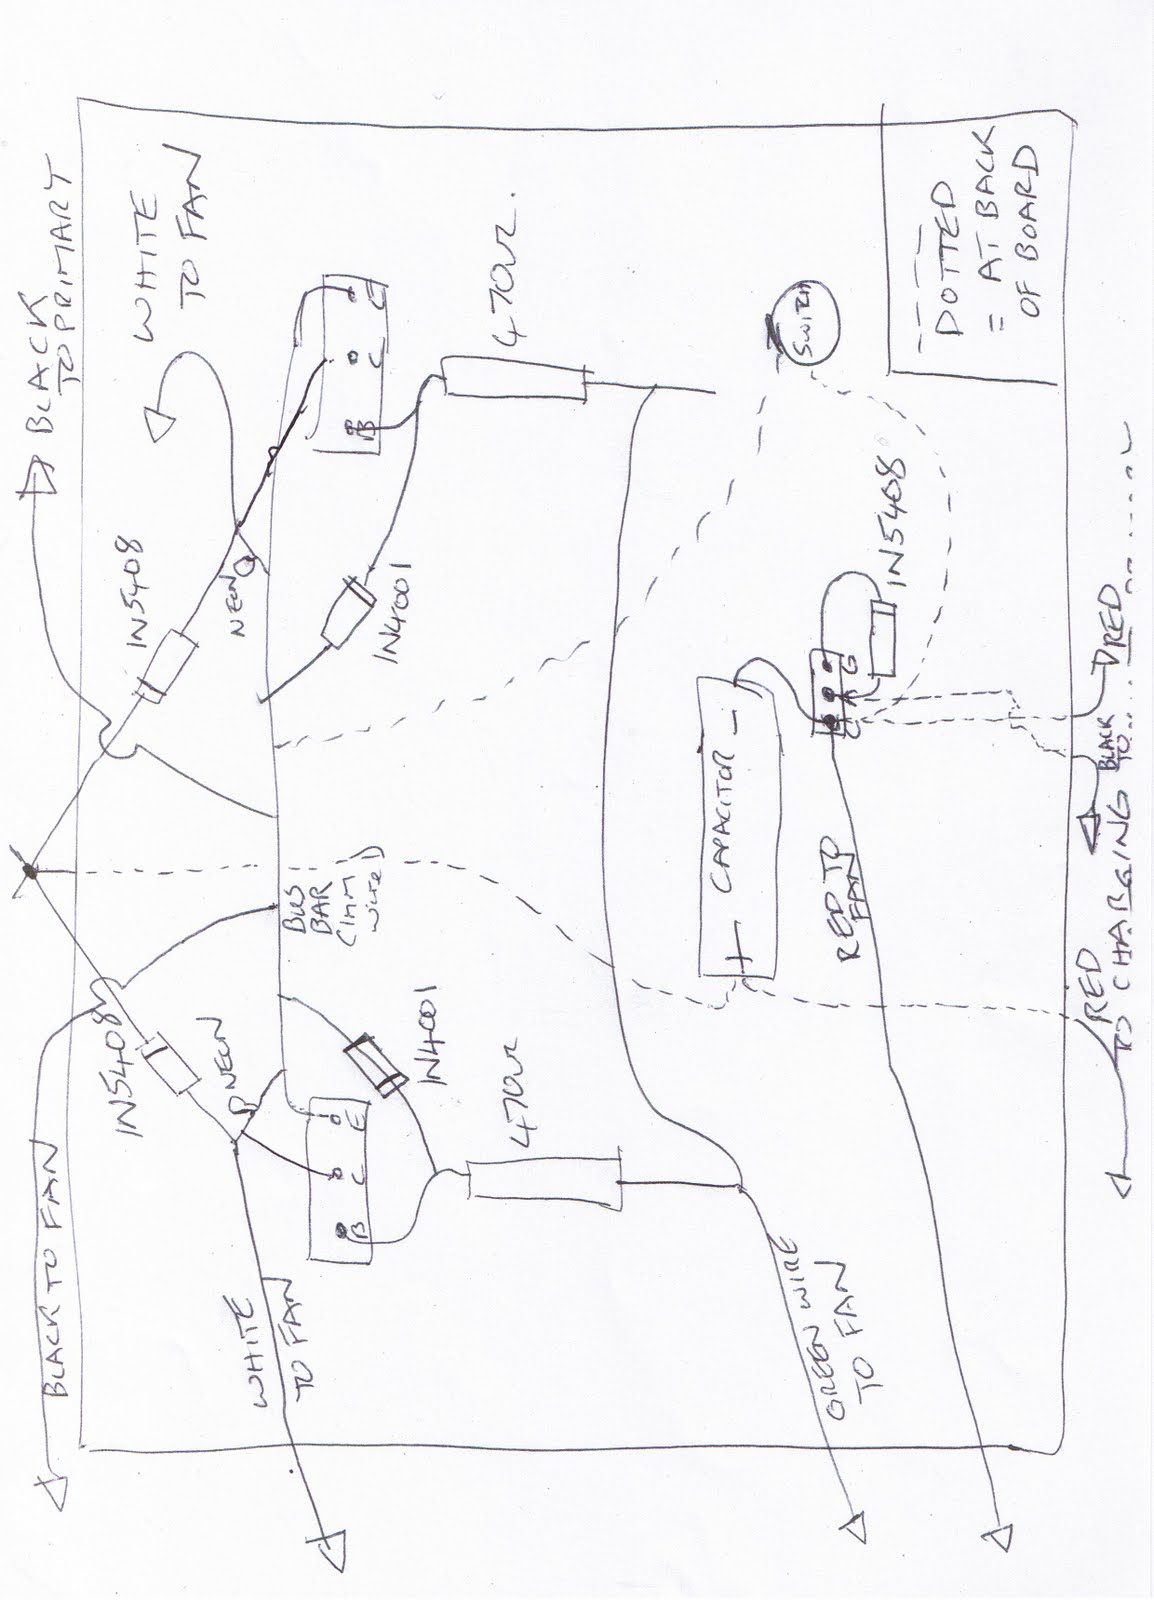 BLACK
TO PRIMARY
WHITE
TO FAN
IN5408
NEON
E
C
B
470R.
IN4001
SWITCH
DOTTED
= AT BACK
OF BOARD
IN5408
G
A
C
CAPACITOR
+
-
BUS
BAR
(1MM
wire)
RED TO
FAN
RED
BLACK
TO
RED
TO CHARGING
BLACK TO FAN
IN5408
NEON
IN4001
E
C
B
470R
WHITE
TO FAN
GREEN WIRE
TO FAN